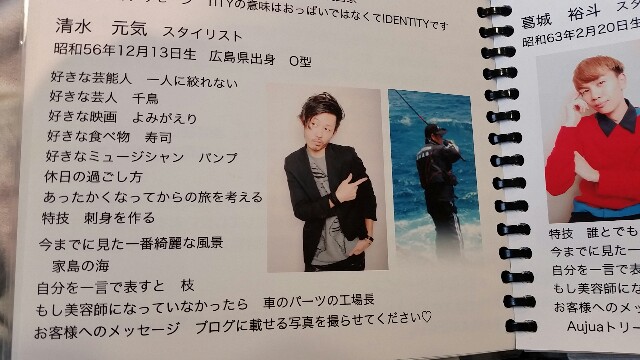 TITYの意味はおっぱいではなくてIDENTITYです
清水 元気 スタイリスト
昭和56年12月13日生 広島県出身 O型
好きな芸能人 一人に絞れない
好きな芸人 千鳥
好きな映画 よみがえり
好きな食べ物 寿司
好きなミュージシャン バンプ
休日の過ごし方
あったかくなってからの旅を考える
特技 刺身を作る
今までに見た一番綺麗な風景
家島の海
自分を一言で表すと 枝
もし美容師になっていなかったら 車のパーツの工場長
お客様へのメッセージ ブログに載せる写真を撮らせてください♡
葛城 裕斗 ス
昭和63年2月20日生
特技 誰とでも
今までに見た
自分を一言で表
もし美容師にな
お客様へのメ
Aujuaトリー